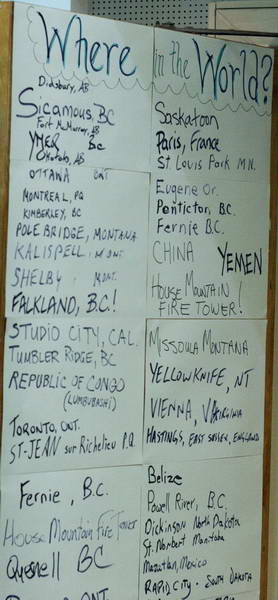 Where in the World?
Didsbury, AB
Sicamous, BC
Fort Mc Murray, AB
YMIR BC
Okotoks, AB
OTTAWA ONT
MONTREAL, PQ
KIMBERLEY, BC
POLEBRIDGE, MONTANA
KALISPELL, MONT
SHELBY, MONT.
FALKLAND, B.C.!
STUDIO CITY, CAL.
TUMBLER RIDGE, BC
REPUBLIC OF CONGO
(LUMBUBASHI)
TORONTO, ONT.
ST-JEAN sur Richelieu P.Q.
Fernie, B.C.
House Mountain Fire Tower
Quesnell BC
ONT
Saskatoon
Paris, France
St Louis Park MN.
Eugene Or.
Penticton, BC.
Fernie B.C.
CHINA YEMEN
HOUSE MOUNTAIN
FIRE TOWER!
MSSOULA MONTANA
YELLOWKNIFE, NT
VIENNA, VIRGINIA
HASTINGS, EAST SUSSEX, ENGLAND
Belize
Powell River, B.C.
Dickinson North Dakota
St. Norbert Manitoba
Mazatlan, Mexico
RAPID CITY - SOUTH DAKOTA